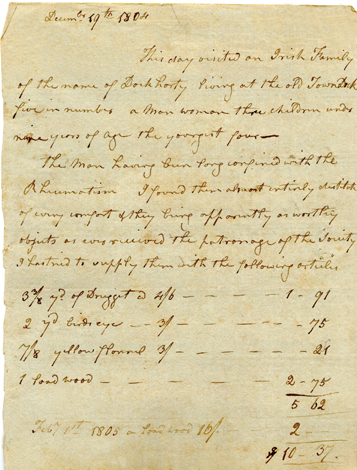 Decemr 19th 1804
This day visited an Irish Family
of the name of Dockhorty living at the old Town Dock
five in number a Man woman three children under
nine years of age the youngest four —
The Man having been long confined with the
Rheumatism I found them almost entirely destitute
of every comfort & they being apparently as worthy
objects as ever received the patronage of the Society
I hastned to supply them with the following articles
3 3/8 yd of Drugget @ 4/6 — — — — 1 - 91
2 yd Birdseye — 3/ — — — — 75
7/8 yellow flannel 3/ — — — 21
1 Load wood — — — — — 2 - 75
5 62
Feby 1805 a Load wood 16/. 2 —
$ 10 - 37.